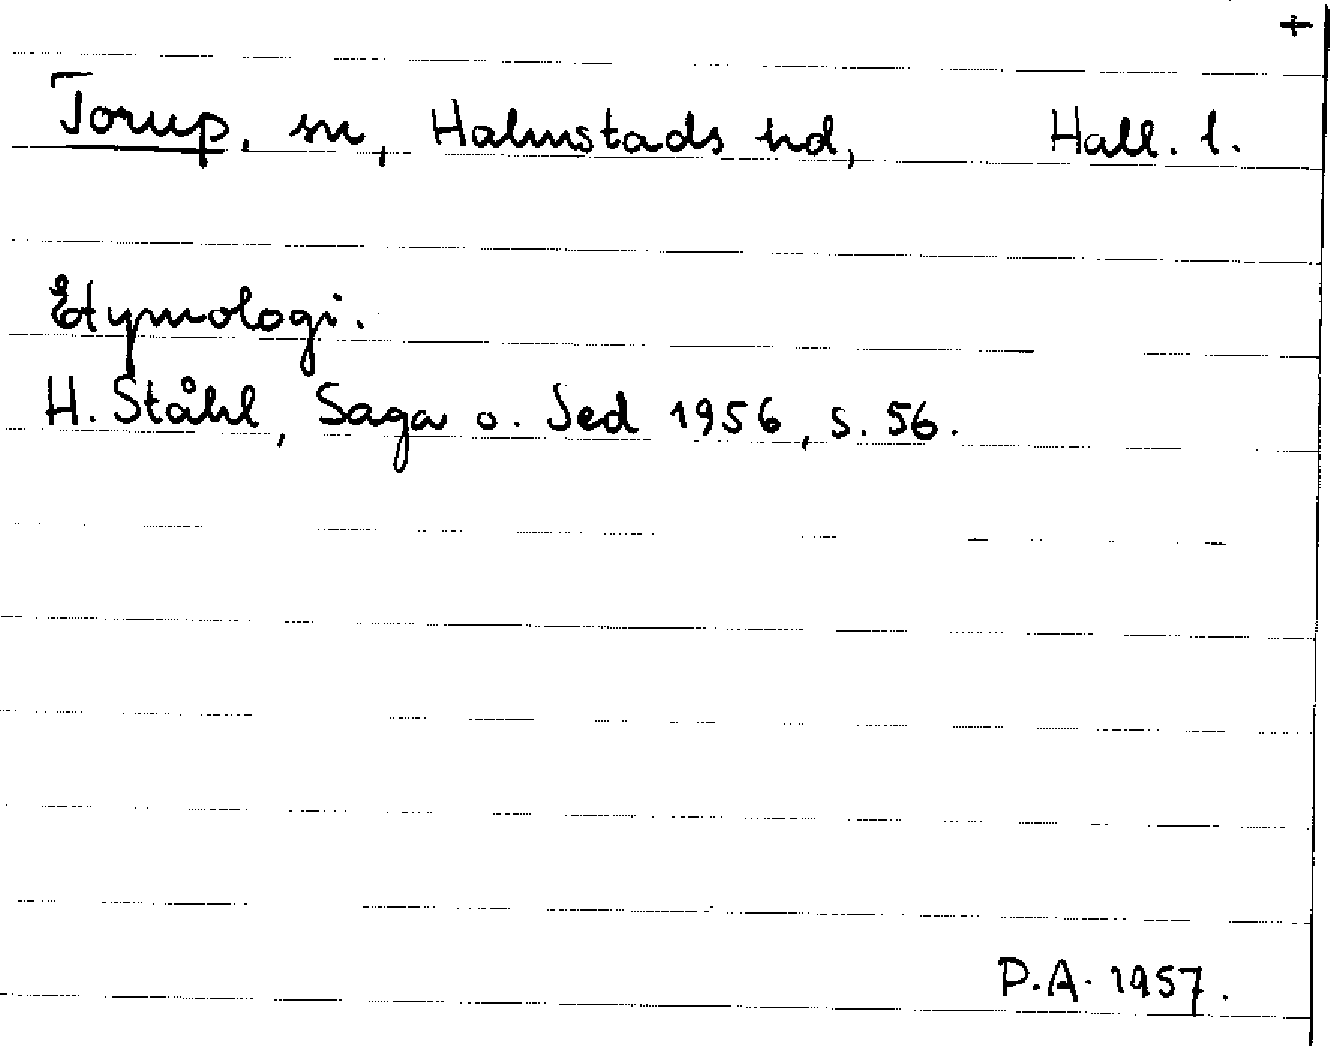 +
Torup, sn, Halmstads hd, Hall. l.
Etymologi.
H. Ståhl, Saga o. Sed 1956, s. 56.
P.A. 1957.